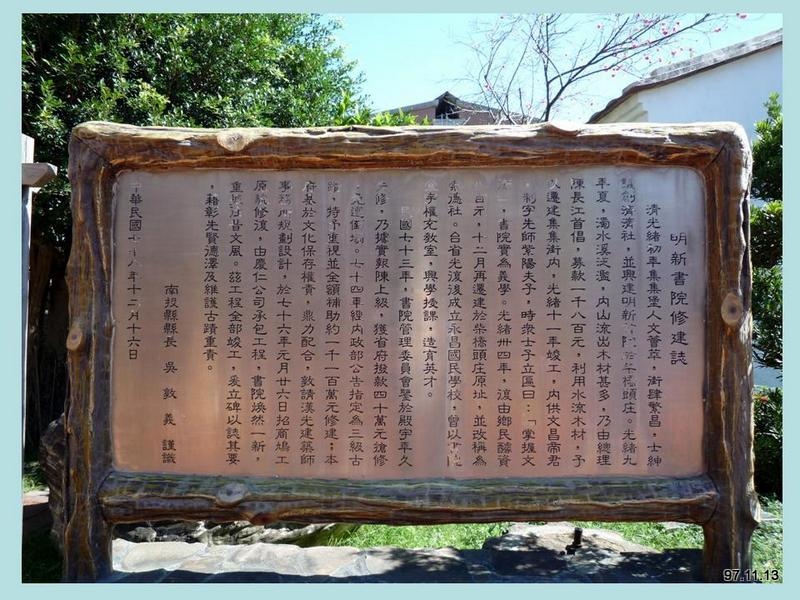 明新書院修建誌
清光緒初年集集堡人文薈萃,街肆繁昌,士紳
議創濟濟社,並興建明新書院於柴橋頭庄。光緒九
年夏,濁水溪泛濫,內山流出木材甚多,乃由總理
陳長江首倡,募款一千八百元,利用水流木材,予
以遷建集集街內,光緒十一年竣工,內供文昌帝君
、制字先師紫陽夫子,時衆士子立匾曰:「掌握文
,書院實為義學。光緒卅四年,復由鄉民醵資
百元,十二月再遷建於柴橋頭庄原址,並改稱為
濟社。台省光復後成立永昌國民學校,曾以
權充教室,興學授課,造育英才。
民國七十三年,書院管理委員會鑒於殿宇年久
失修,乃據實報陳上級,獲省府撥款四十萬元搶修
倒塌。七十四年經內政部公告指定為三級古
蹟,特予重視並全額補助約一千一百萬元修建;本
府基於文化保存權責,鼎力配合,敦請漢光建築師
事務所規劃設計,於七十六年元月廿六日招商鳩工
原貌修復,由慶仁公司承包工程,書院煥然一新,
重振昔日文風。茲工程全部竣工,爰立碑以誌其要
,藉彰先賢德澤及維護古蹟重責。
南投縣縣長 吳敦義 謹識
中華民國七十八年十二月十六日
97.11.13